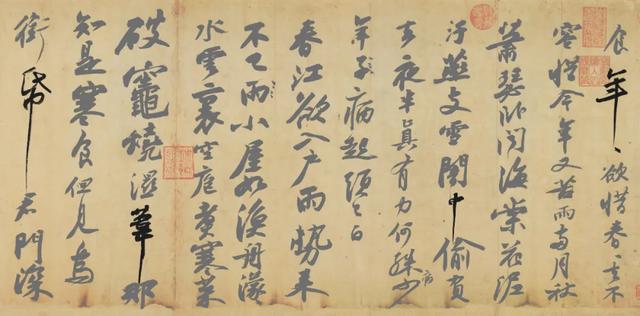 食年〻欲惜春〻去不
容惜今年又苦雨兩月秋
蕭瑟卧聞海棠花泥
汙燕支雪闇中偷負
去夜半真有力何殊病少
年子病起頭已白
春江欲入戶雨勢來
不已雨小屋如漁舟濛〻
水雲裏空庖煮寒菜
破竈燒濕葦那
知是寒食但見烏
銜帋君門深